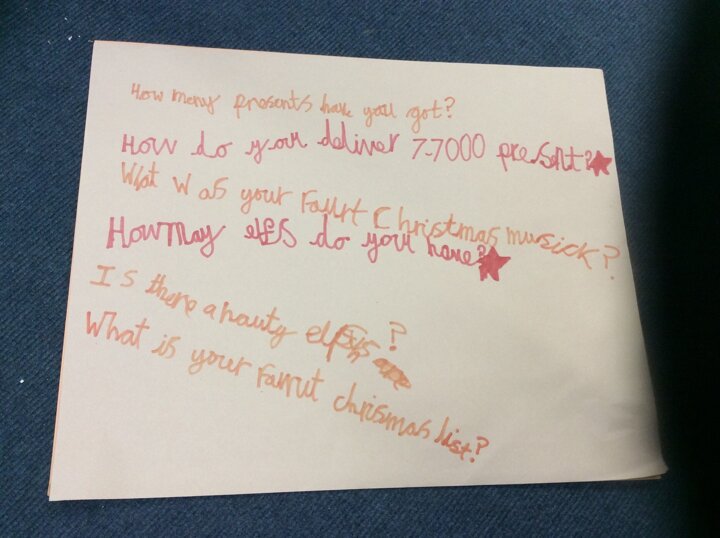 How meny presents have you got?
How do you deliver 7-7000 present?
What was your Favurt Christmas musick?
How may elfs do you have?
Is there a nauty elfs?
What is your Favrut chrismas list?